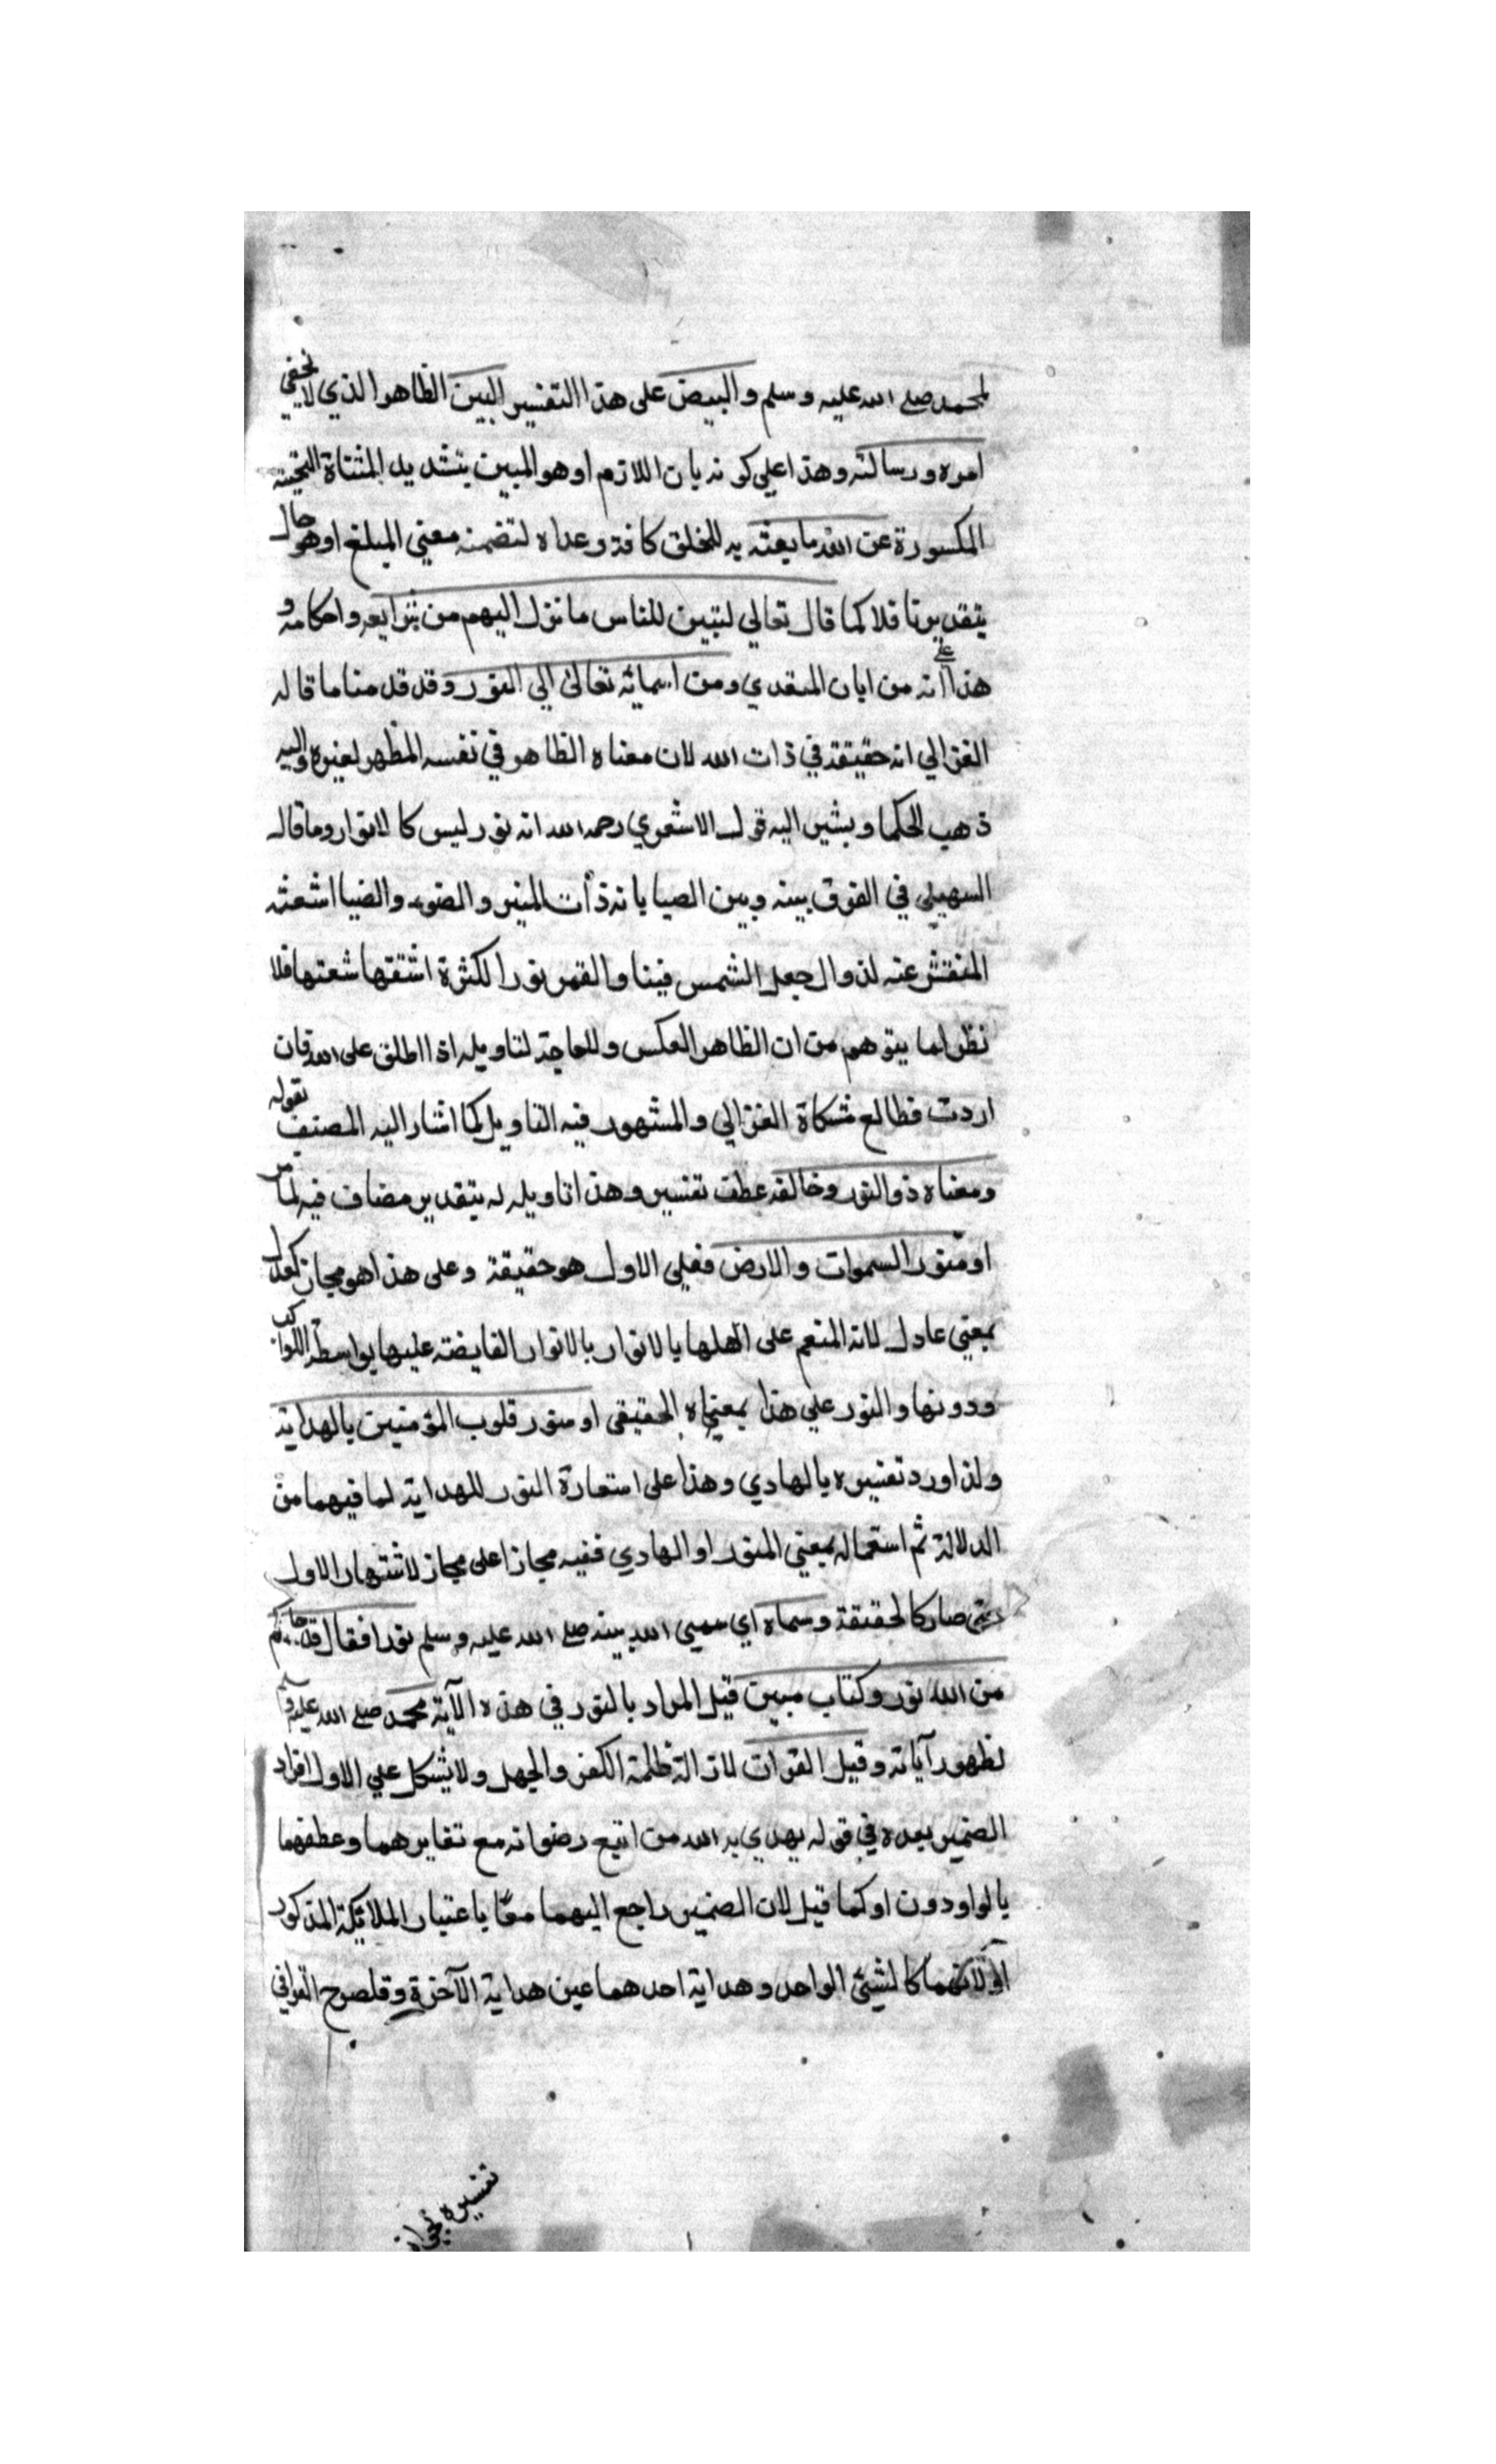 لمحمد صلى الله عليه وسلم والبيض على هذا التفسير البين الظاهر الذي لا يخفى
امره ورسالته وهذا علي كونه بان اللازم او هو المبين بتشديد المثناة التحتية
المكسورة عن الله ما بعثه به للخلق كافة وعداه لتضمنه معني المبلغ او هو حال
بتقدير ناقلا كما قال تعالي لتبين للناس ما نزل اليهم من شرايعه واحكامه و
هذا علي انه من ابان المتعدي ومن اسمائه تعالى الي النور وقد قدمنا ما قاله
الغزالي انه حقيقة في ذات الله لان معناه الظاهر في نفسه المظهر لغيره واليه
ذهب الحكما ويشير اليه قول الاشعري رحمه الله انه نور ليس كالانوار وما قاله
السهيلي في الفرق بينه وبين الضيا بانه ذات المنير والضوء والضيا اشعته
المنتشر عنه لذ وال جعل الشمس فينا والقمر نورا لكثرة اشعتها فلا
نظر لما يتوهم من ان الظاهر العكس وللحاجة لتاويله اذا اطلق على الله فان
اردت فطالع مشكاة الغزالي والمشهور فيه التاويل كما اشار اليه المصنف بقوله
ومعناه ذو النور وخالقه عطف تفسير وهذا تاويله له بتقدير مضاف فيه لما مر
او منور السموات والارض فعلي الاول هو حقيقة وعلى هذا هو مجاز كعدل
بمعني عادل لانه المنعم على اهلها بالانوار بالانوار الفايضة عليها بواسطة الكواكب
ودونها والنور علي هذا بمعناه الحقيقي او منور قلوب المؤمنين بالهداية
ولذا ورد تفسيره بالهادي وهذا على استعارة النور للهداية لما فيهما من
الدلالة ثم استعماله بمعني المنور او الهادي ففيه مجازا على مجاز لاشتهار الاول
حتى صار كالحقيقة وسماه اي سمي الله نبيه صلى الله عليه وسلم نورا فقال قد جاءكم
من الله نور وكتاب مبين قيل المراد بالنور في هذه الآية محمد صلى الله عليه وسلم
لظهور آياته وقيل القرآن لازالة ظلمة الكفر والجهل ولا يشكل علي الاول افراد
الضمير بعده في قوله يهدي به الله من اتبع رضوانه مع تغايرهما وعطفهما
بالواو دون او كما قيل لان الضمير راجع اليهما معا باعتبار المذكور
او لانهما كالشيئ الواحد وهداية احدهما عين هداية الآخرة وقد صرح القرافي
تفسيره